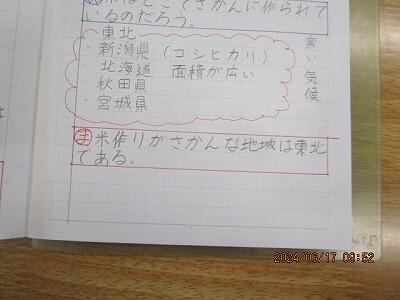 米はどこでさかんに作られて
いるのだろう。
東北
・新潟県（コシヒカリ）
・北海道 面積が広い
・秋田県
・宮城県
寒い気候
㋮米作りがさかんな地域は東北
である。
2024/06/17 09:52